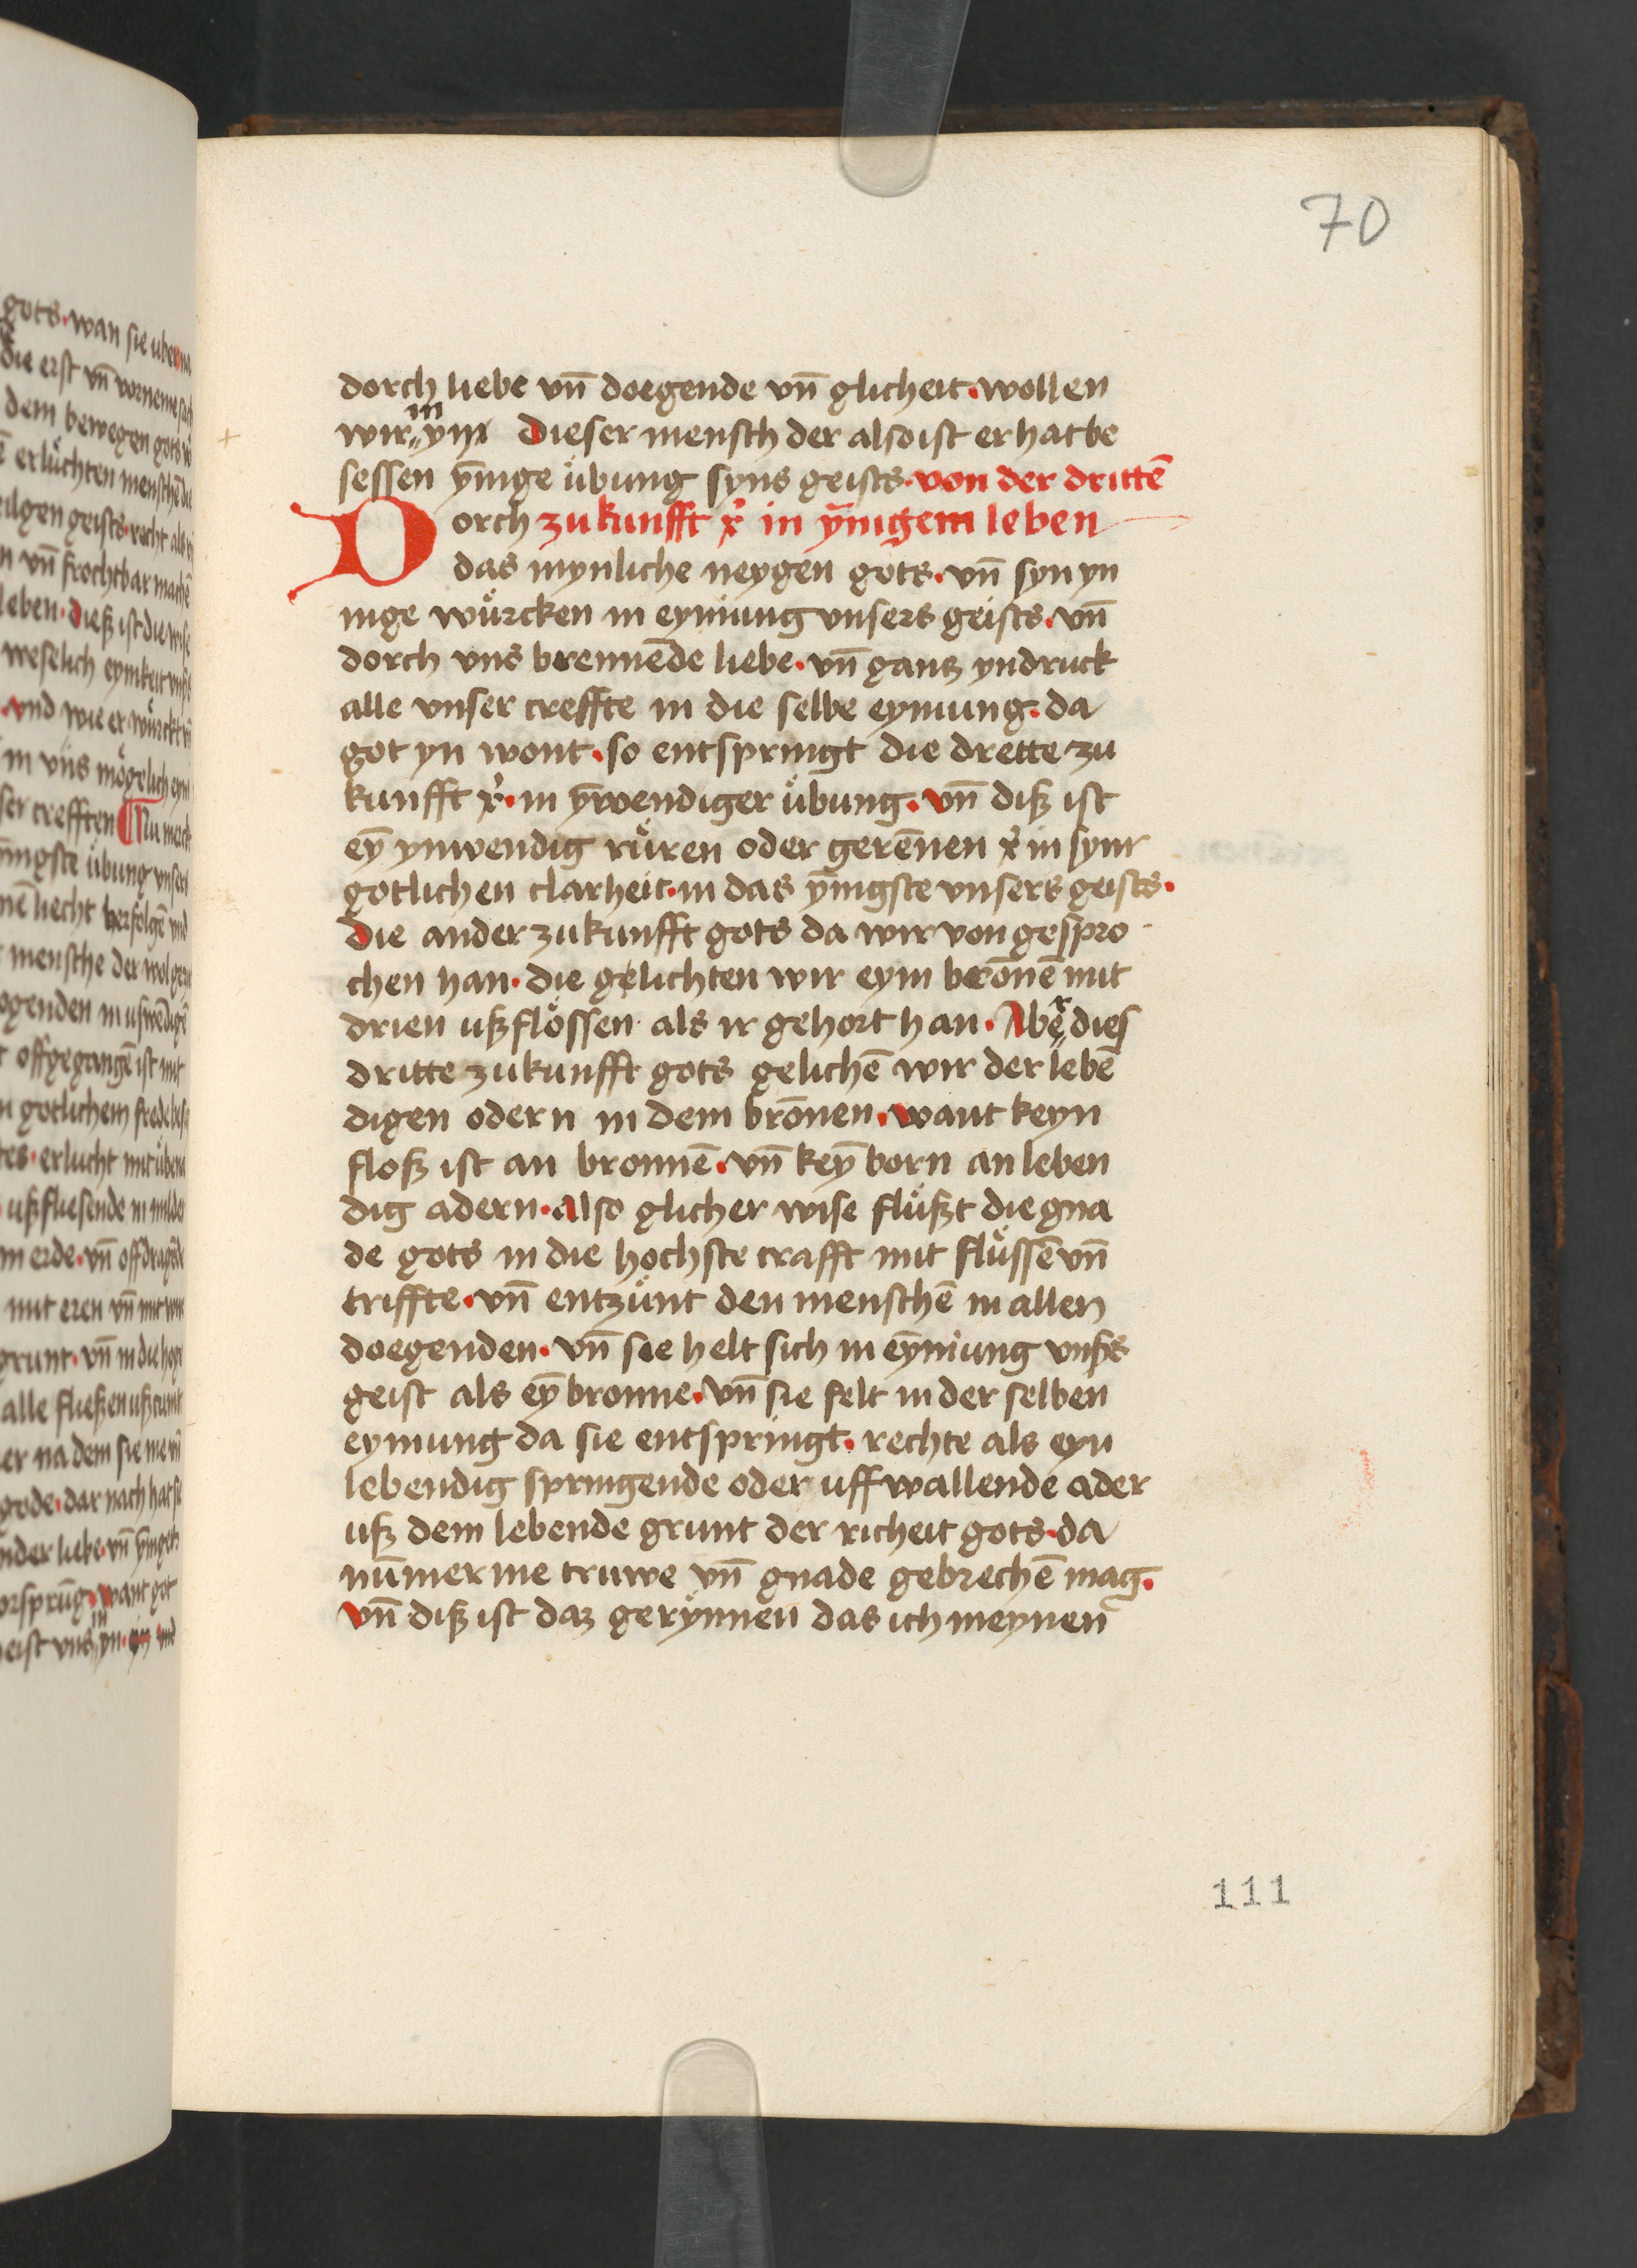 70
dorch liebe vn̄ doegende vn̄ glicheit · wollen
wir in ym Dieser mensch der also ist er hat be
sessen ȳnige ubung syns geists · von der drittē
Dorch zukunfft xp̄i in ȳnigem leben
das mynliche neygen gots · vn̄ syn yn
nige wůrcken in eyniung vnsers geists · vn̄
dorch vns brennēde liebe · vn̄ gantz yndruck
alle vnser creffte in die selbe eyniung · da
got yn wont · so entspringt die drette zu
kunfft xp̄i · in ȳwendiger ůbung · vn̄ diß ist
eȳ ynwendig růren oder gerēnen xp̄i in synr
gotlichen clarheit · in das ȳnigste vnsers geists ·
die ander zukunfft gots da wir von gespro
chen han · die gelichten wir eym berōnē mit
drien ußflőssen als ir gehort han · Aber dies
dritte zukunfft gots gelichē wir der lebē
digen odern in dem brōnen · want keyn
floß ist an bronnē · vn̄ keȳ born an leben
dig adern · also glicher wise flůßt die gna
de gots in die hochste crafft mit flůssē vn̄
triffte · vn̄ entzůnt den menschē in allen
doegenden · vn̄ sie helt sich in eȳniung vnß̄s
geist als eȳ bronne · vn̄ sie felt in der selben
eyniung da sie entspringt · rechte als eyn
lebendig springende oder uff wallende ader
uß dem lebende grunt der richeit gots · da
nūmer me truwe vn̄ gnade gebrechē mag ·
vn̄ diß ist daz gerynnen das ich meynen
111